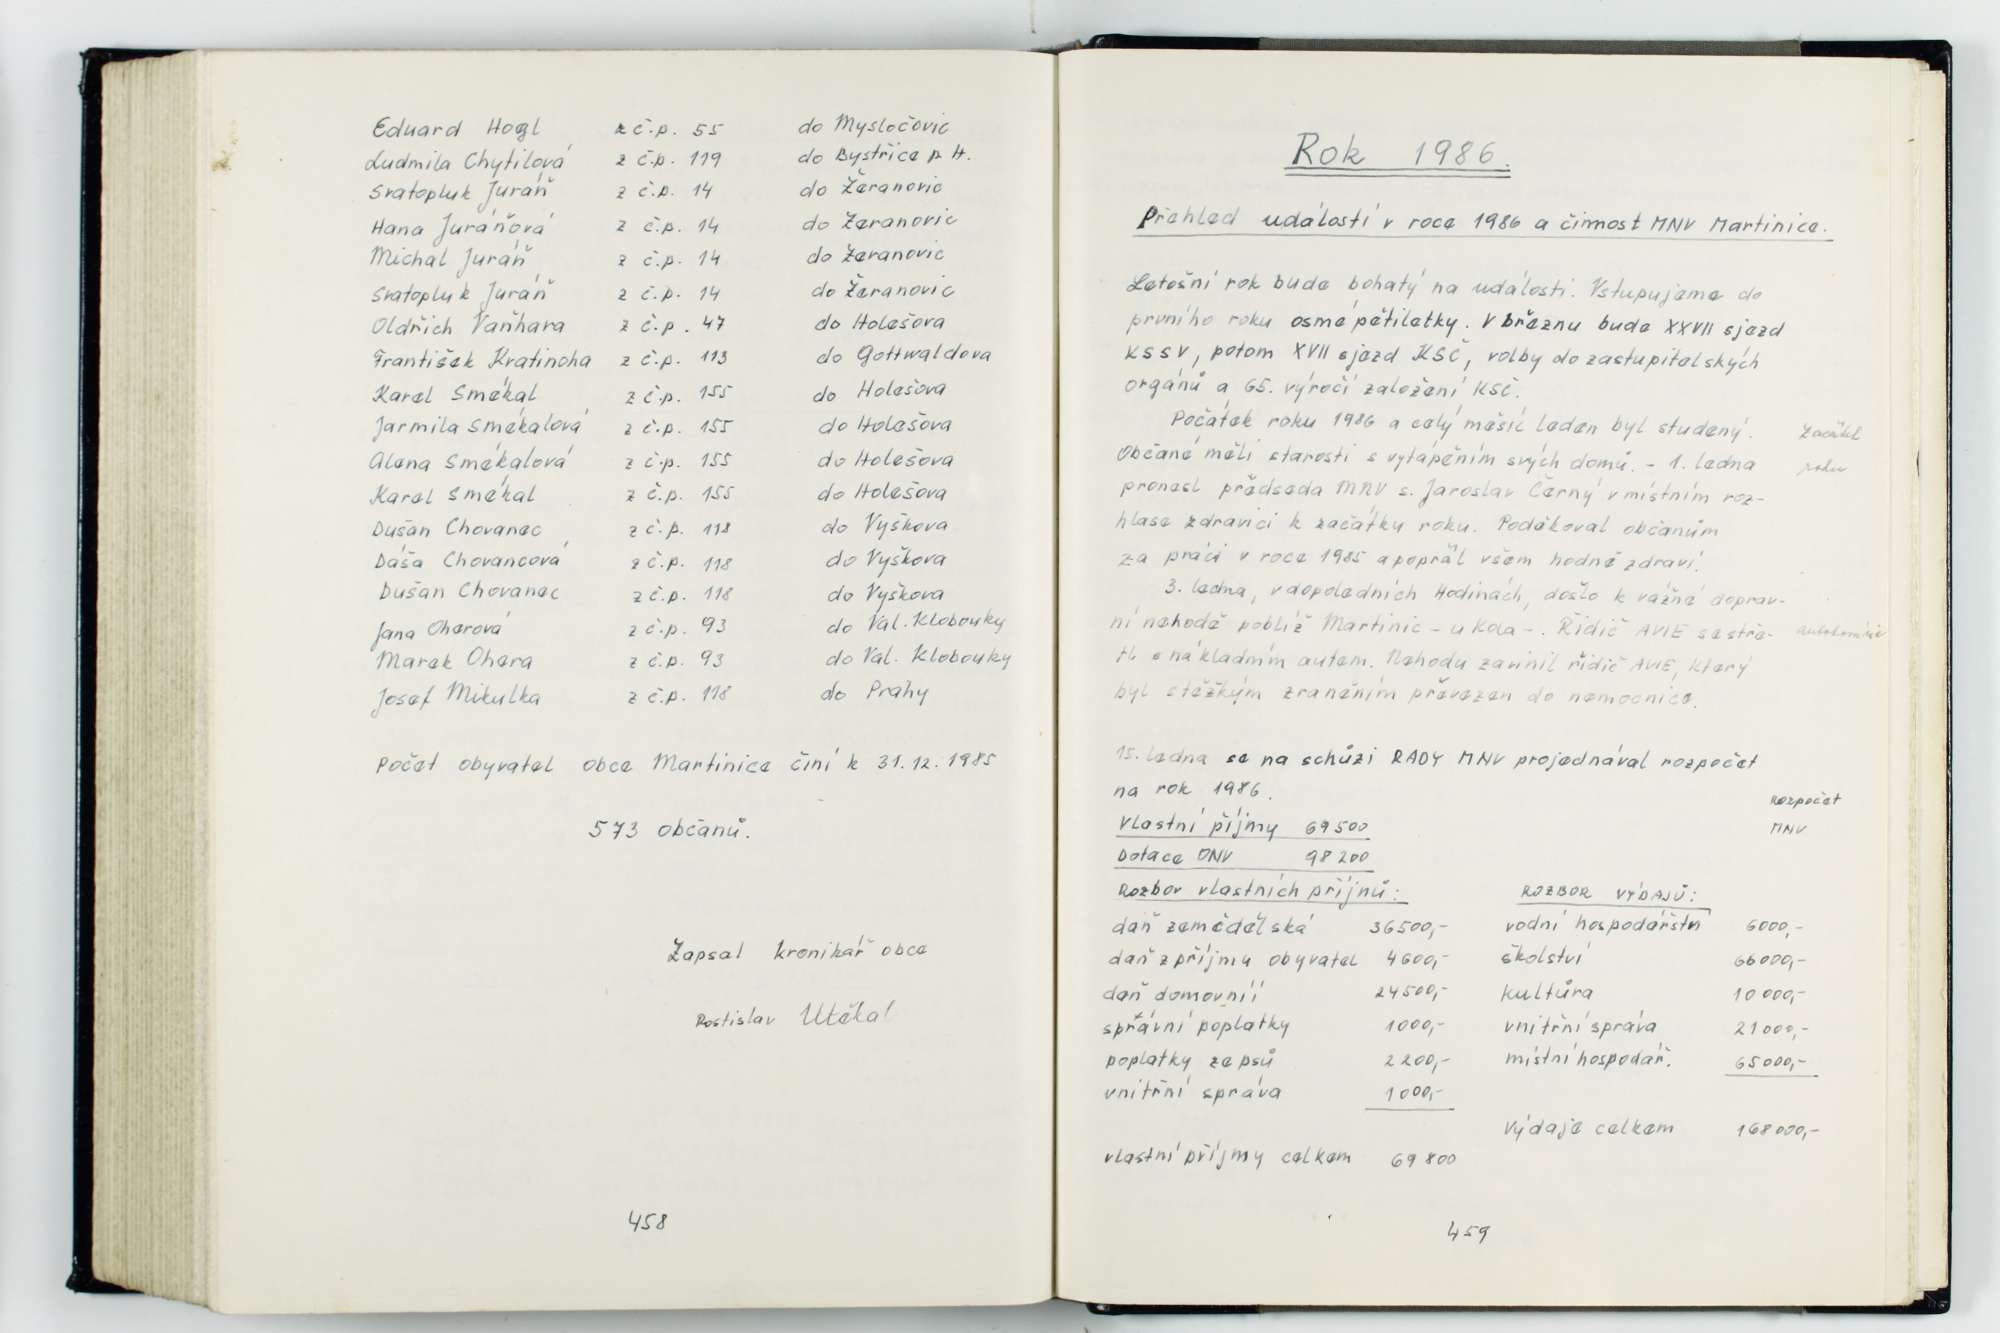 Eduard Hogl z č.p. 55 do Mysločovic
Ludmila Chytilová z č.p. 119 do Bystřice p H.
Svatopluk Juráň z č.p. 14 do Žeranovic
Hana Juráňová z č.p. 14 do Žeranovic
Michal Juráň z č.p. 14 do Žeranovic
Svatopluk Juráň z č.p. 14 do Žeranovic
Oldřich Vaňhara z č.p. 47 do Holešova
František Kratinoha z č.p. 113 do Gottwaldova
Karel Smékal z č.p. 155 do Holešova
Jarmila Smékalová z č.p. 155 do Holešova
Alena Smékalová z č.p. 155 do Holešova
Karel Smékal z č.p. 155 do Holešova
Dušan Chovanec z č.p. 118 do Vyškova
Dáša Chovancová z č.p. 118 do Vyškova
Dušan Chovanec z č.p. 118 do Vyškova
Jana Oherová z č.p. 93 do Val. Klobouky
Marek Ohera z č.p. 93 do Val. Klobouky
Josef Mikulka z č.p. 118 do Prahy
Počet obyvatel obce Martinice činí k 31.12.1985
573 občanů.
Zapsal kronikář obce
Rostislav Utěkal
458
Rok 1986.
Přehled událostí v roce 1986 a činnost MNV Martinice.
Letošní rok bude bohatý na události. Vstupujeme do
prvního roku osmé pětiletky. V březnu bude XXVII sjezd
KSSV, potom XVII sjezd KSČ, volby do zastupitelských
orgánů a 65. výročí založení KSČ.
Počátek roku 1986 a celý měsíc leden byl studený. Začátek
Občané měli starosti s vytápěním svých domů. - 1. ledna roku
pronesl předseda MNV s. Jaroslav Černý v místním roz-
hlase zdravici k začátku roku. Poděkoval občanům
za práci v roce 1985 a popřál všem hodně zdraví.
3. ledna, v dopoledních hodinách, došlo k vážné doprav-
ní nehodě poblíž Martinic - u Kola -. Řidič AVIE se stře-
tl s nákladním autem. Nehodu zavinil řidič AVIE, který
byl s těžkým zraněním převezen do nemocnice.
15. ledna se na schůzi RADY MNV projednával rozpočet
na rok 1986. Rozpočet
Vlastní příjmy 69500 MNV
Dotace ONV 98200
Rozbor vlastních příjmů: ROZBOR VÝDAJŮ:
daň zemědělská 36500,- vodní hospodářství 6000,-
daň z příjmu obyvatel 4600,- školství 66000,-
daň domovní 24500,- kultůra 10000,-
správní poplatky 1000,- vnitřní správa 21000,-
poplatky ze psů 2200,- místní hospodář. 65000,-
vnitřní správa 1000,-
výdaje celkem 168000,-
vlastní příjmy celkem 69800
459